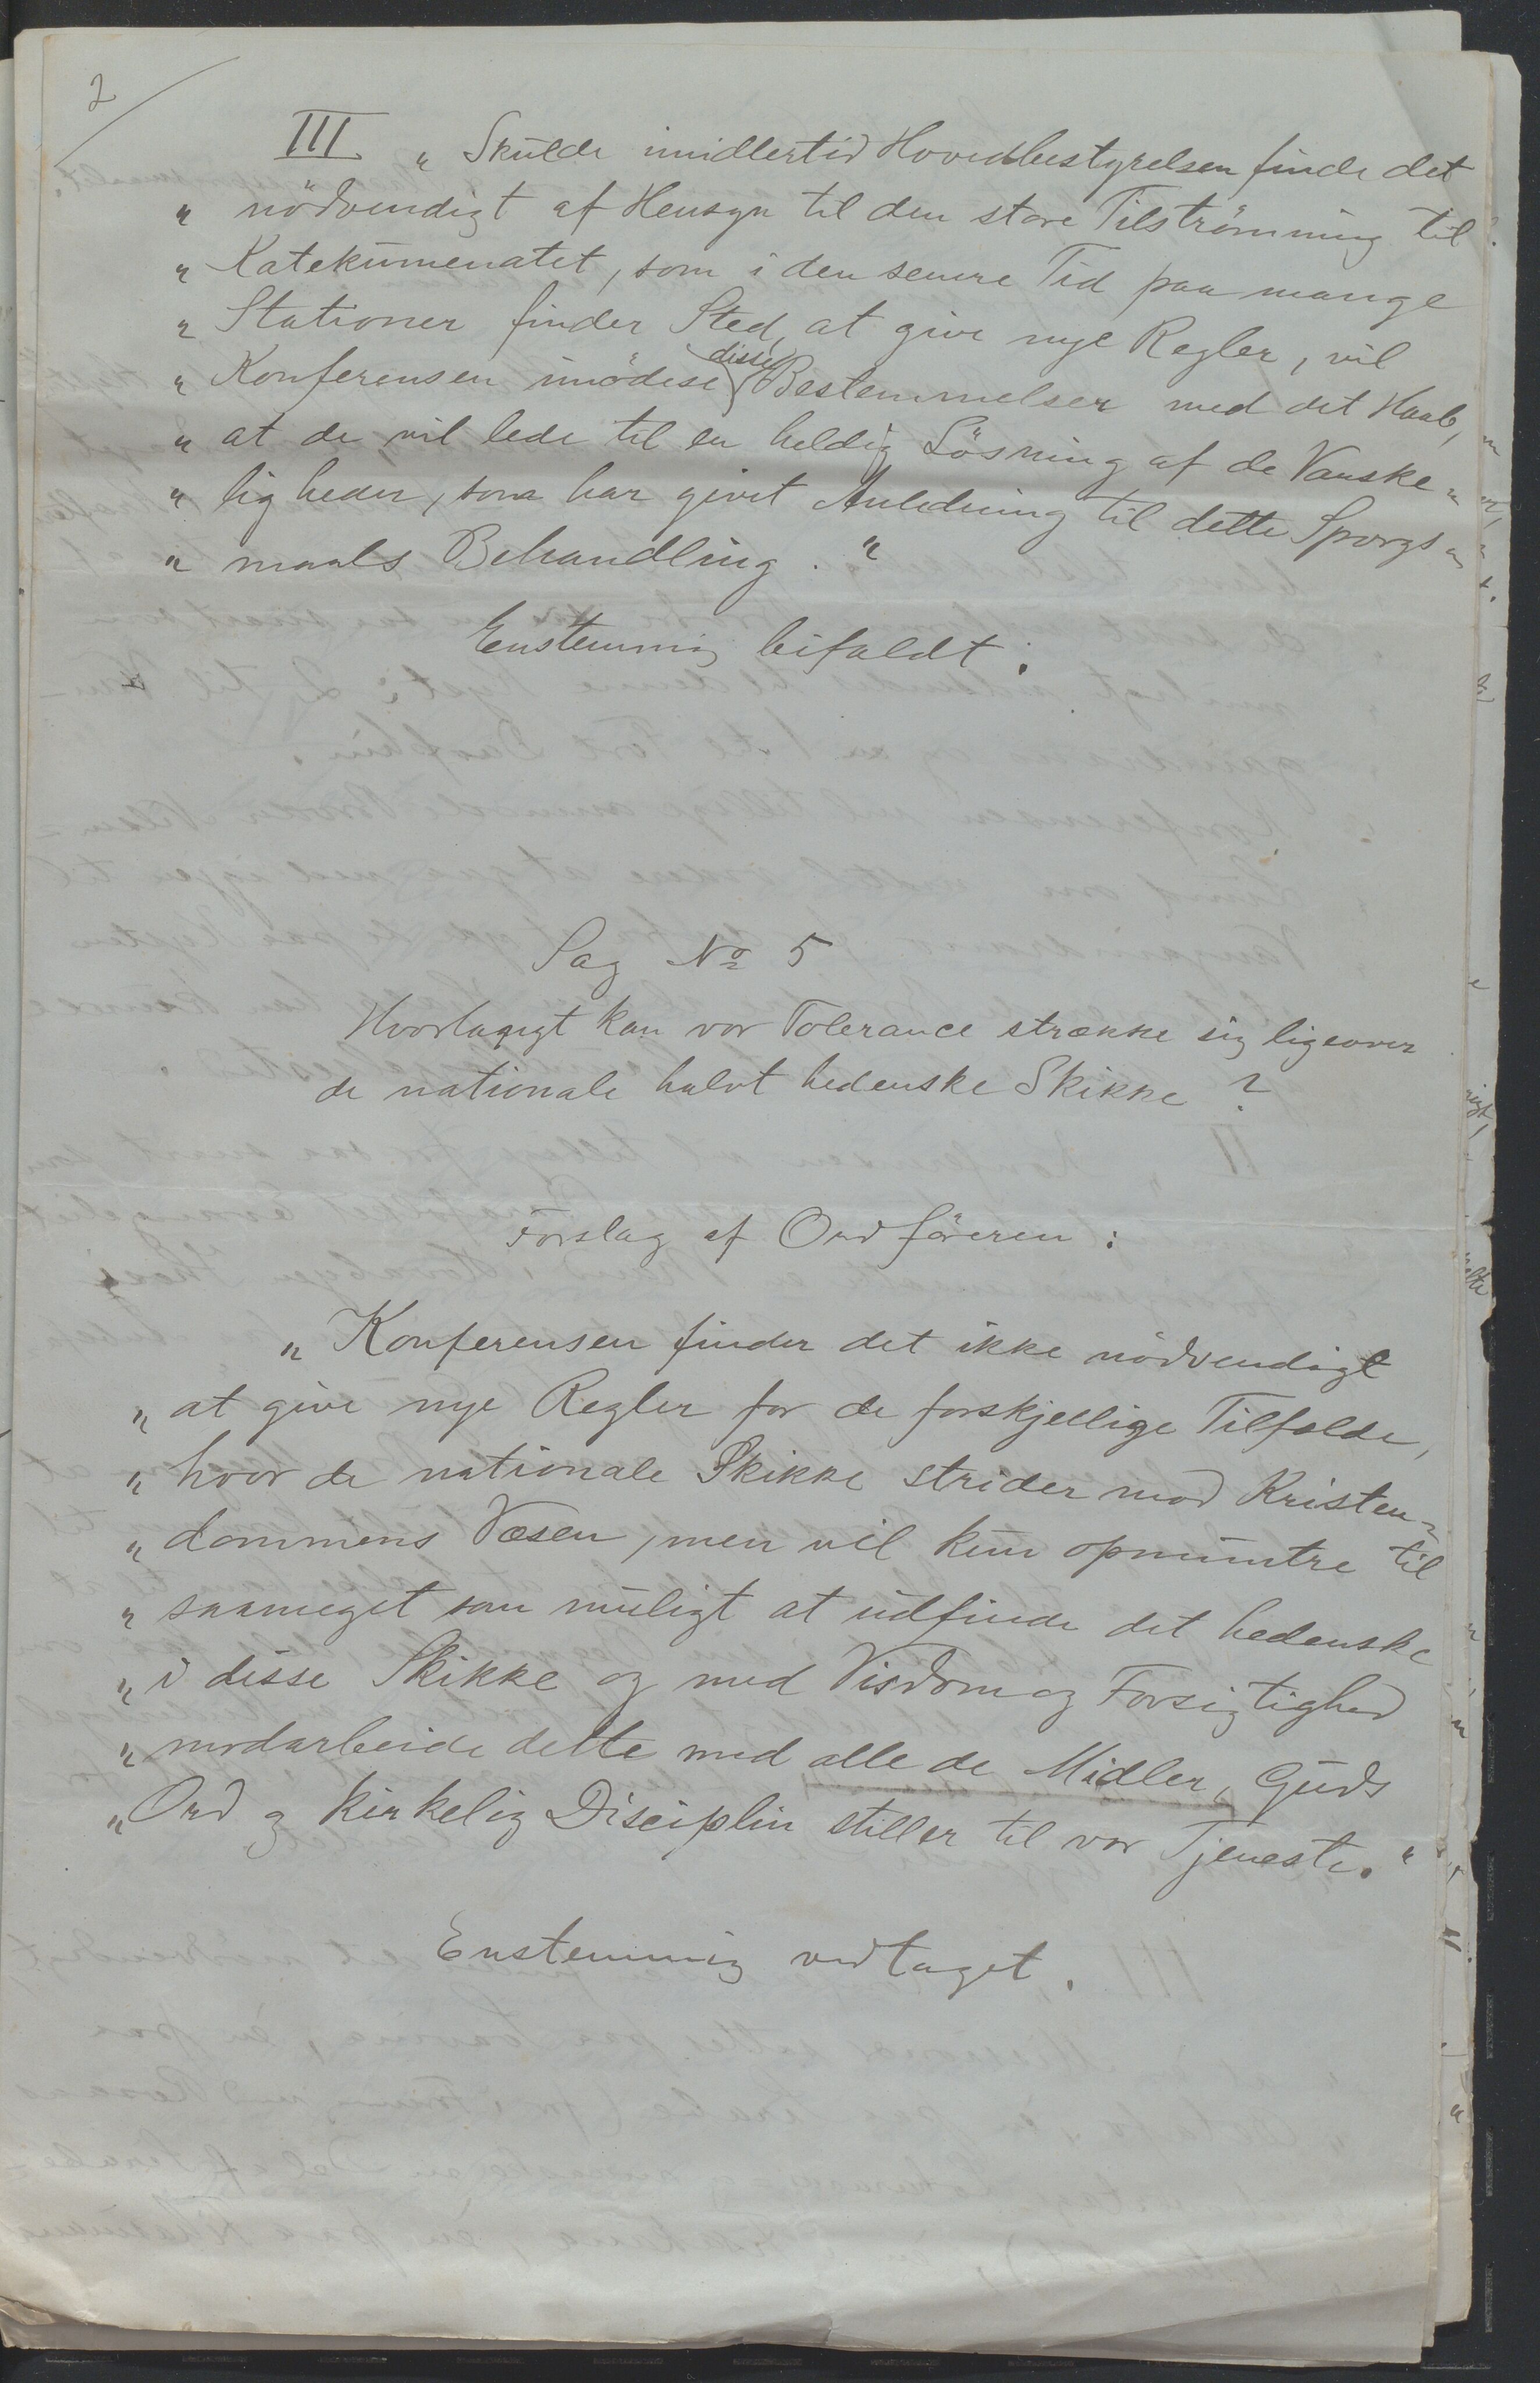 2
III. „ Skulde imidlertid Hovedbestyrelsen finde det
„ nödvendigt af Hensyn til den store Tilströmning til
„ Katekumenatet, som i den senere Tid paa mange
„ Stationer finder Sted, at give nye Regler, vil
„ Konferensen imödese disse Bestemmelser med det Haab,
„ at de vil lede til en heldig Lösning af de Vanske-
„ ligheder, som har givet Anledning til dette Sporgs-
„ maals Behandling. "
Enstemmig bifaldt.
Sag No 5
Hvorlangt kan vor Tolerance strække sig ligeover
de nationale halvt hedenske Skikke ?
Forslag af Ordföreren :
„ Konferensen finder det ikke nödvendigt
„ at give nye Regler for de forskjellige Tilfælde,
„ hvor de nationale Skikke strider mod Kristen-
„ dommens Væsen, men vil kun opmuntre til
„ saameget som muligt at udfinde det hedenske
„ i disse Skikke og med Visdom og Forsigtighed
„ modarbeide dette med alle de Midler, Guds
„ Ord og kirkelig Disciplin stiller til vor Tjeneste. "
Enstemmig vedtaget.